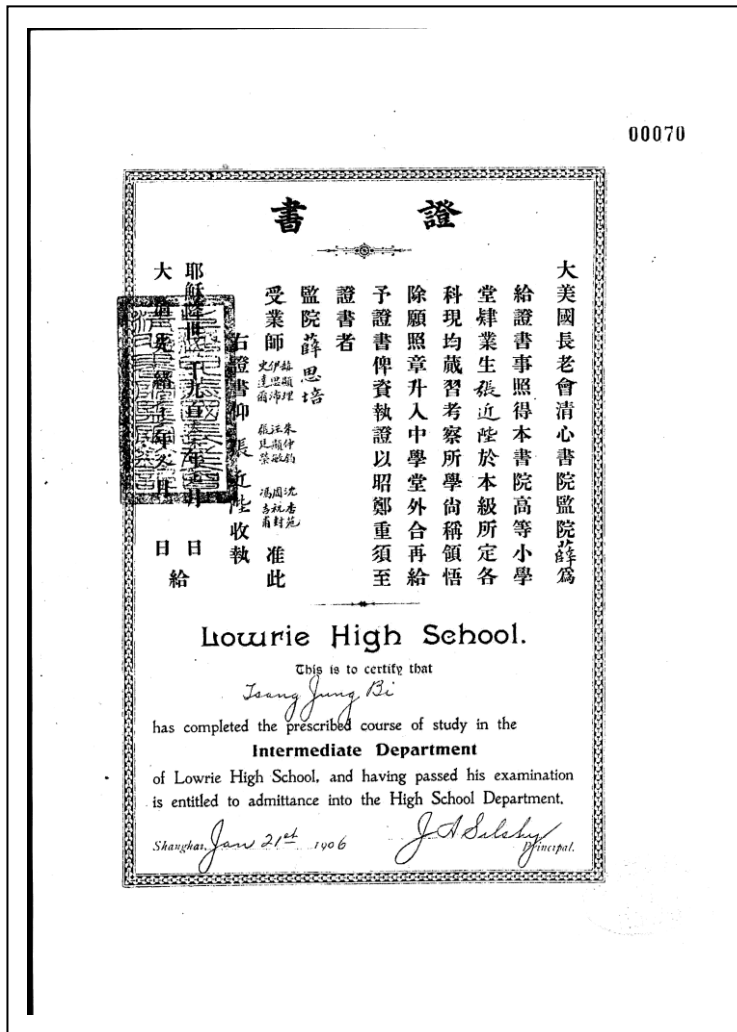 00070
證書
大美國長老會清心書院監院薛爲
給證書事照得本書院高等小學
堂肄業生張近陞於本級所定各
科現均蕆習考察所學尙稱領悟
除願照章升入中學堂外合再給
予證書俾資執證以昭鄭重須至
證書者
監院薛思培
受業師 准此
右證書仰張近陞收執
耶穌降世一千九百 年 月 日
大 光緒 年 月 日給
Lowrie High School.
This is to certify that
Tsang Jung Bi
has completed the prescribed course of study in the
Intermediate Department
of Lowrie High School, and having passed his examination
is entitled to admittance into the High School Department.
Shanghai, Jan 21st 1906 J A Silsby
Principal.